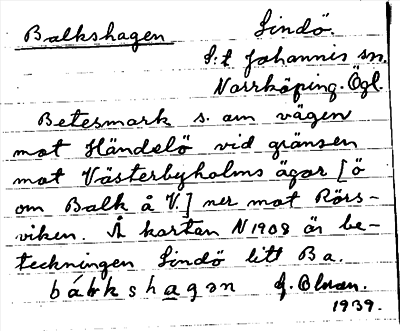 Balkshagen Lindö.
S:t Johannis sn.
Norrköping. Ögl.
Betesmark s. om vägen
mot Händelö vid gränsen
mot Västerbyholms ägor [ö
om Balk å V.] ner mot Rörs-
viken. Å kartan N 1908 är be-
teckningen Lindö litt Ba.
bálkshagan
1939.